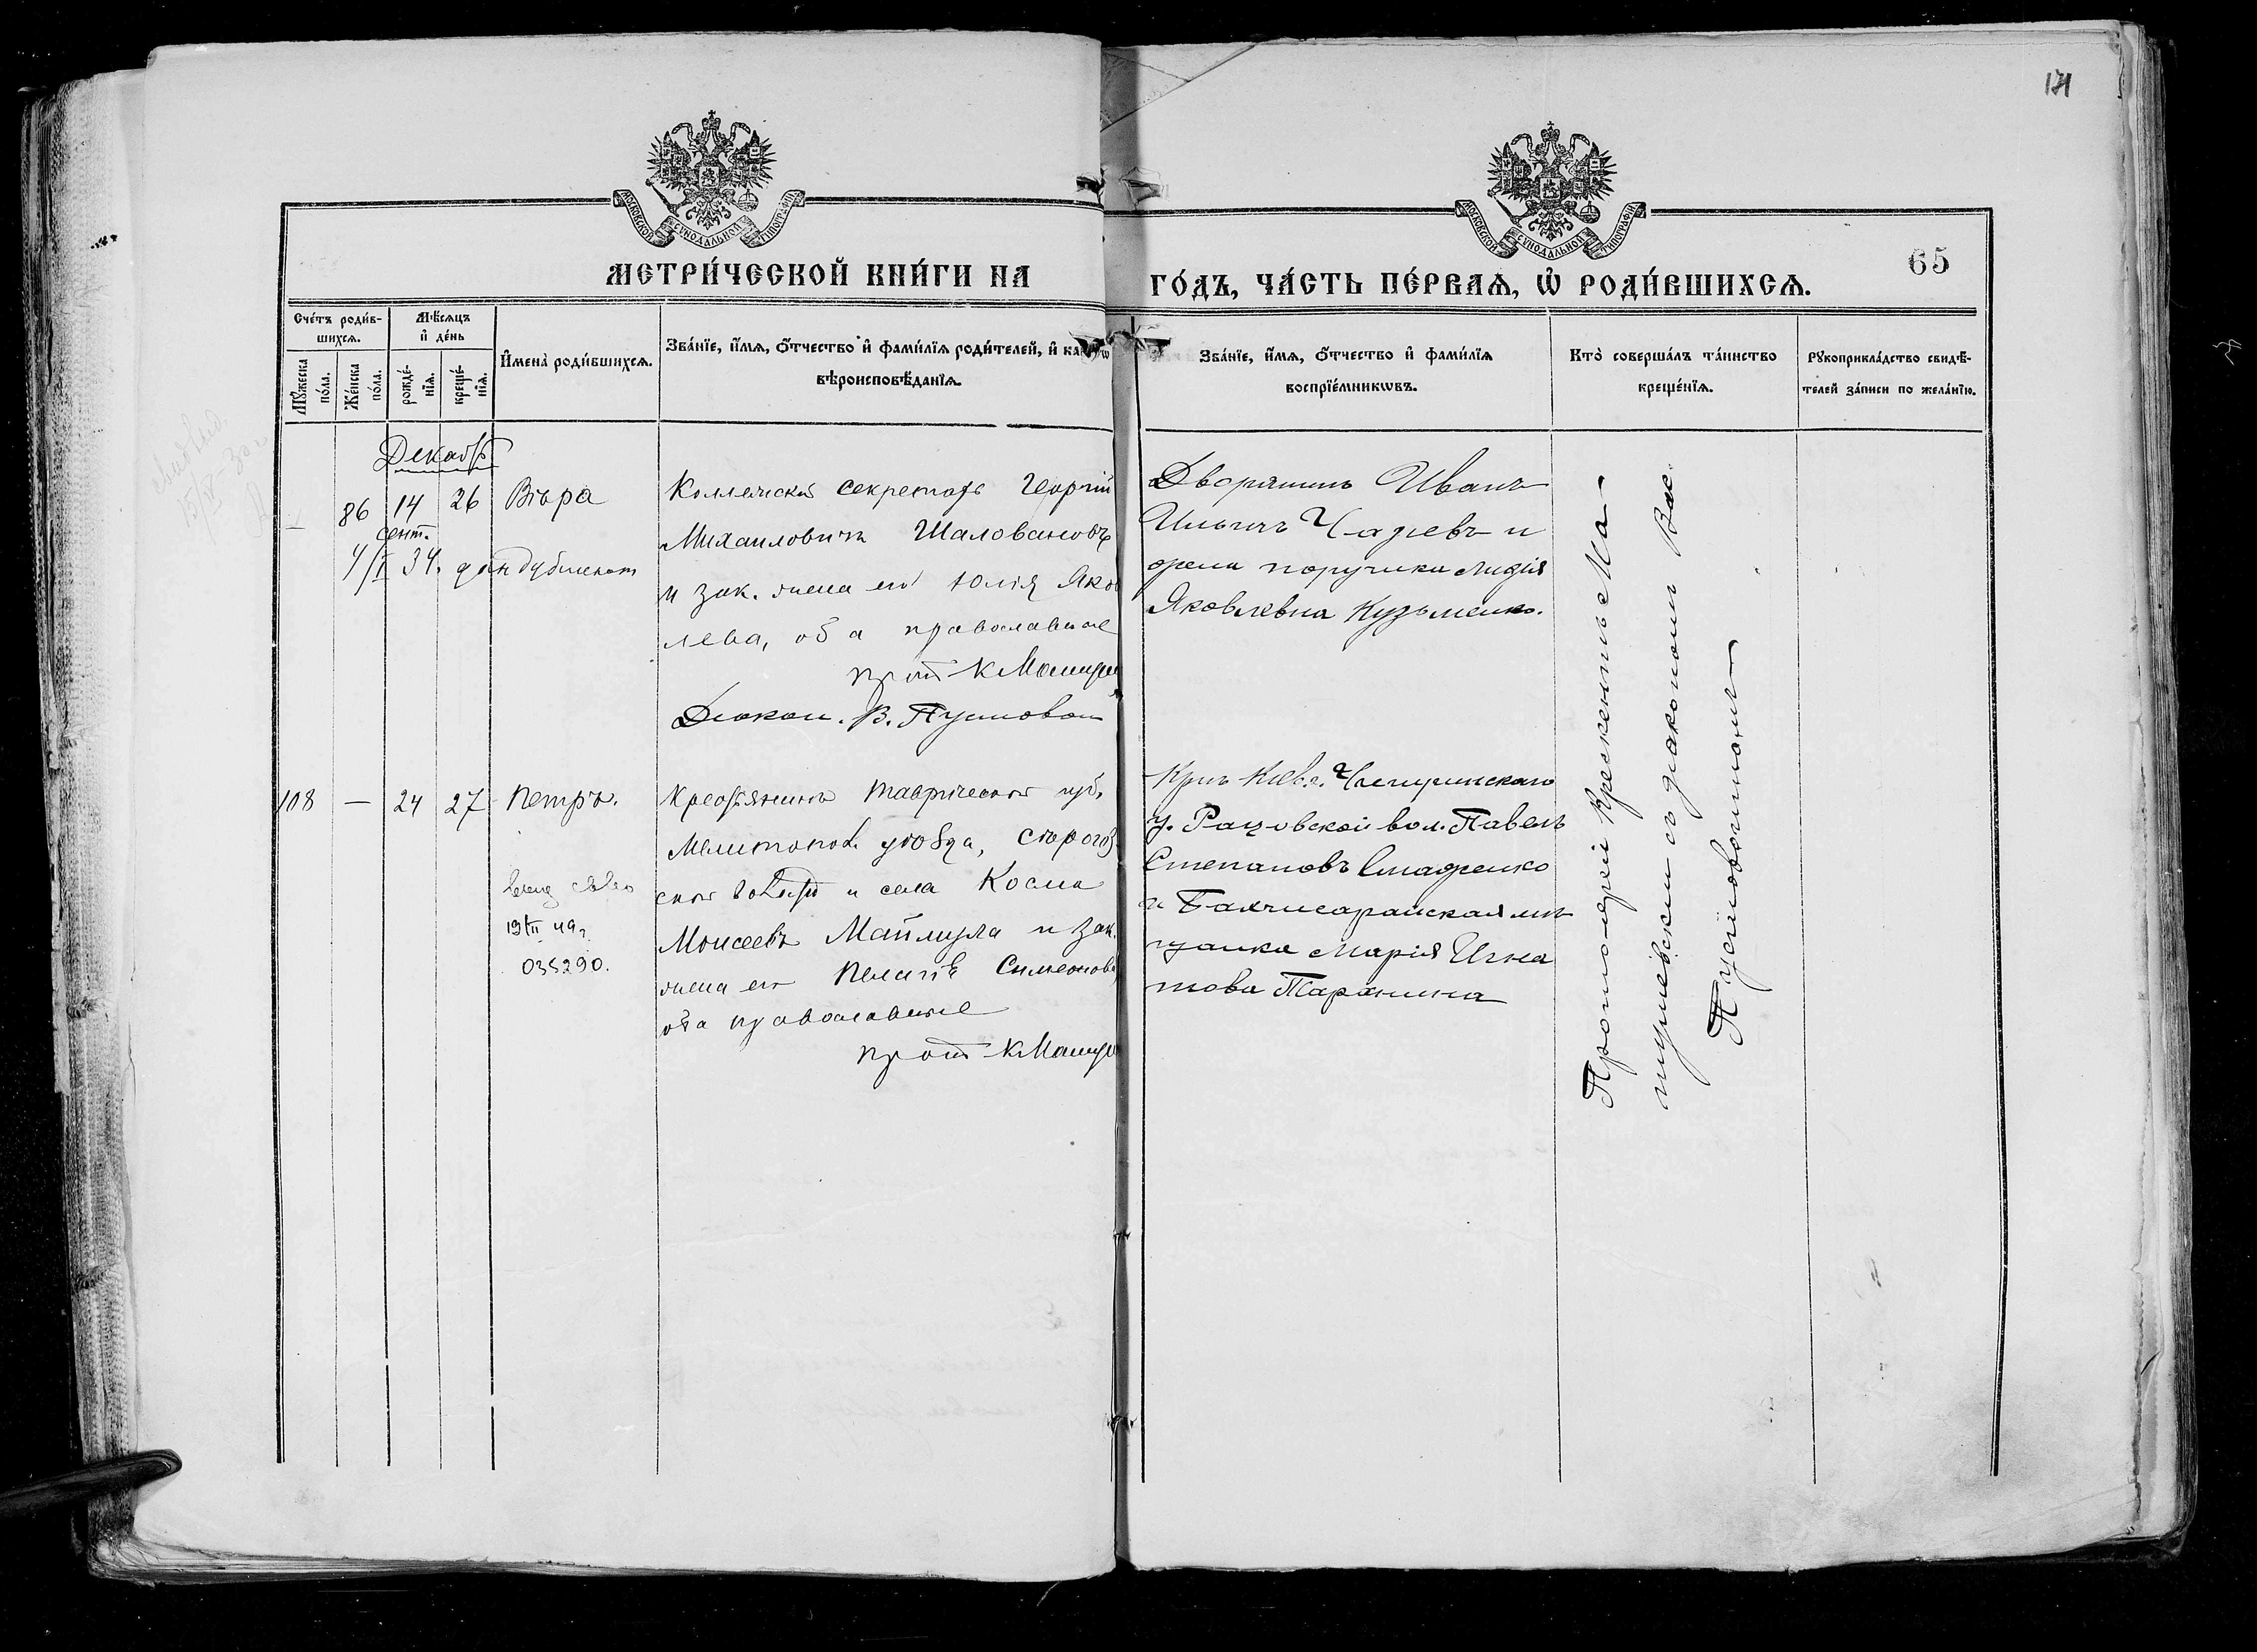 171
МОСКОВСКОЙ СѴНОДАЛЬНОЙ ТИПОГРАФІИ
МОСКОВСКОЙ СѴНОДАЛЬНОЙ ТИПОГРАФІИ
65
МЕТРИ́ЧЕСКОЙ КНИ́ГИ НА
ГО́ДЪ, ЧА́СТЬ ПЕ́РВАѦ, Ѽ РОДИ́ВШИХСѦ.
Сче́тъ роди́в-
шихсѧ.
Мꙋ́жеска
по́ла.
Же́нска
по́ла.
Мѣ́сѧцъ
и҆ де́нь
рожде́-
нїѧ.
креще́-
нїѧ.
И҆мена̀ роди́вшихсѧ.
Зва́нїе, и҆́мѧ, ѻ҆́тчество и҆ фами́лїѧ роди́телей, и҆
вѣроисповѣ́данїѧ.
Зва́нїе, и҆́мѧ, ѻ҆́тчество и҆ фами́лїѧ
воспрїе́мникѡвъ.
Кто̀ соверша́лъ та́инство
креще́нїѧ.
Рꙋкоприкла́дство свидѣ́-
телей за́писи по жела́нїю.
Декабрь
86 14 26 Вѣра
сент.
4/I 34. дан дубликат
Коллежскій секретарь Георгій
Михаиловичъ Шаловановъ
и зак. жена его Юлія Яков
лева, оба православные
прот К Машур
Диакон. В. Пустовой
Дворянинъ Иванъ
Ильичъ Чадаевъ и
жена поручика Лидія
Яковлевна Кузьменко.
108 — 24 27 Петръ.
19/XII 49 г.
035290.
Крестьянинъ Таврической губ.
Мелитопол. уѣзда,
ской волости и села Косма
Моисеевъ и зак.
жена его Пелагія Симеонова
оба православные
прот К Машур
Кр-нъ Кіев. г. Чигиринскаго
у. Рацовской вол. Павелъ
Степановъ
и Бахчисарайская мѣ-
щанка Марія Игна
това Таранина
Протоіерей Крескентъ Ма-
шуревскій съ діакономъ Вас.
Пустовойтомъ